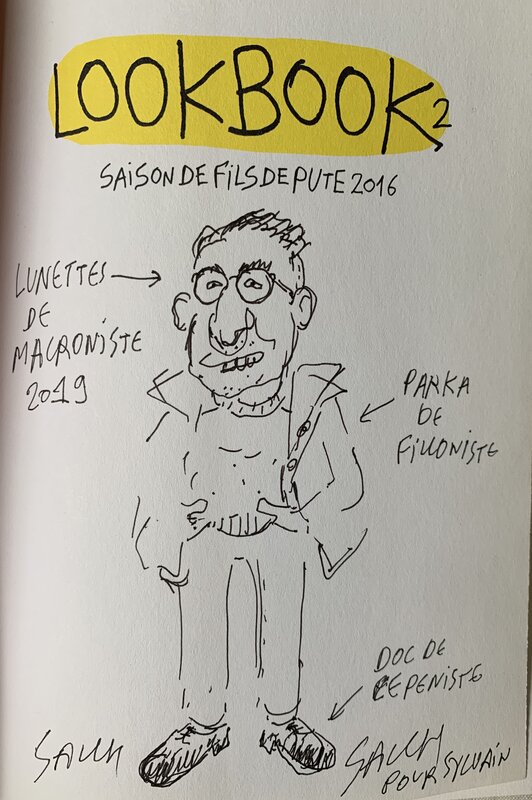 LOOKBOOK 2
SAISON DE FILS DE PUTE 2016
LUNETTES
DE
MACRONISTE
2019
PARKA
DE
FILLONISTE
DOC DE
LEPENISTE
SALCH
SALCH
POUR SYLVAIN